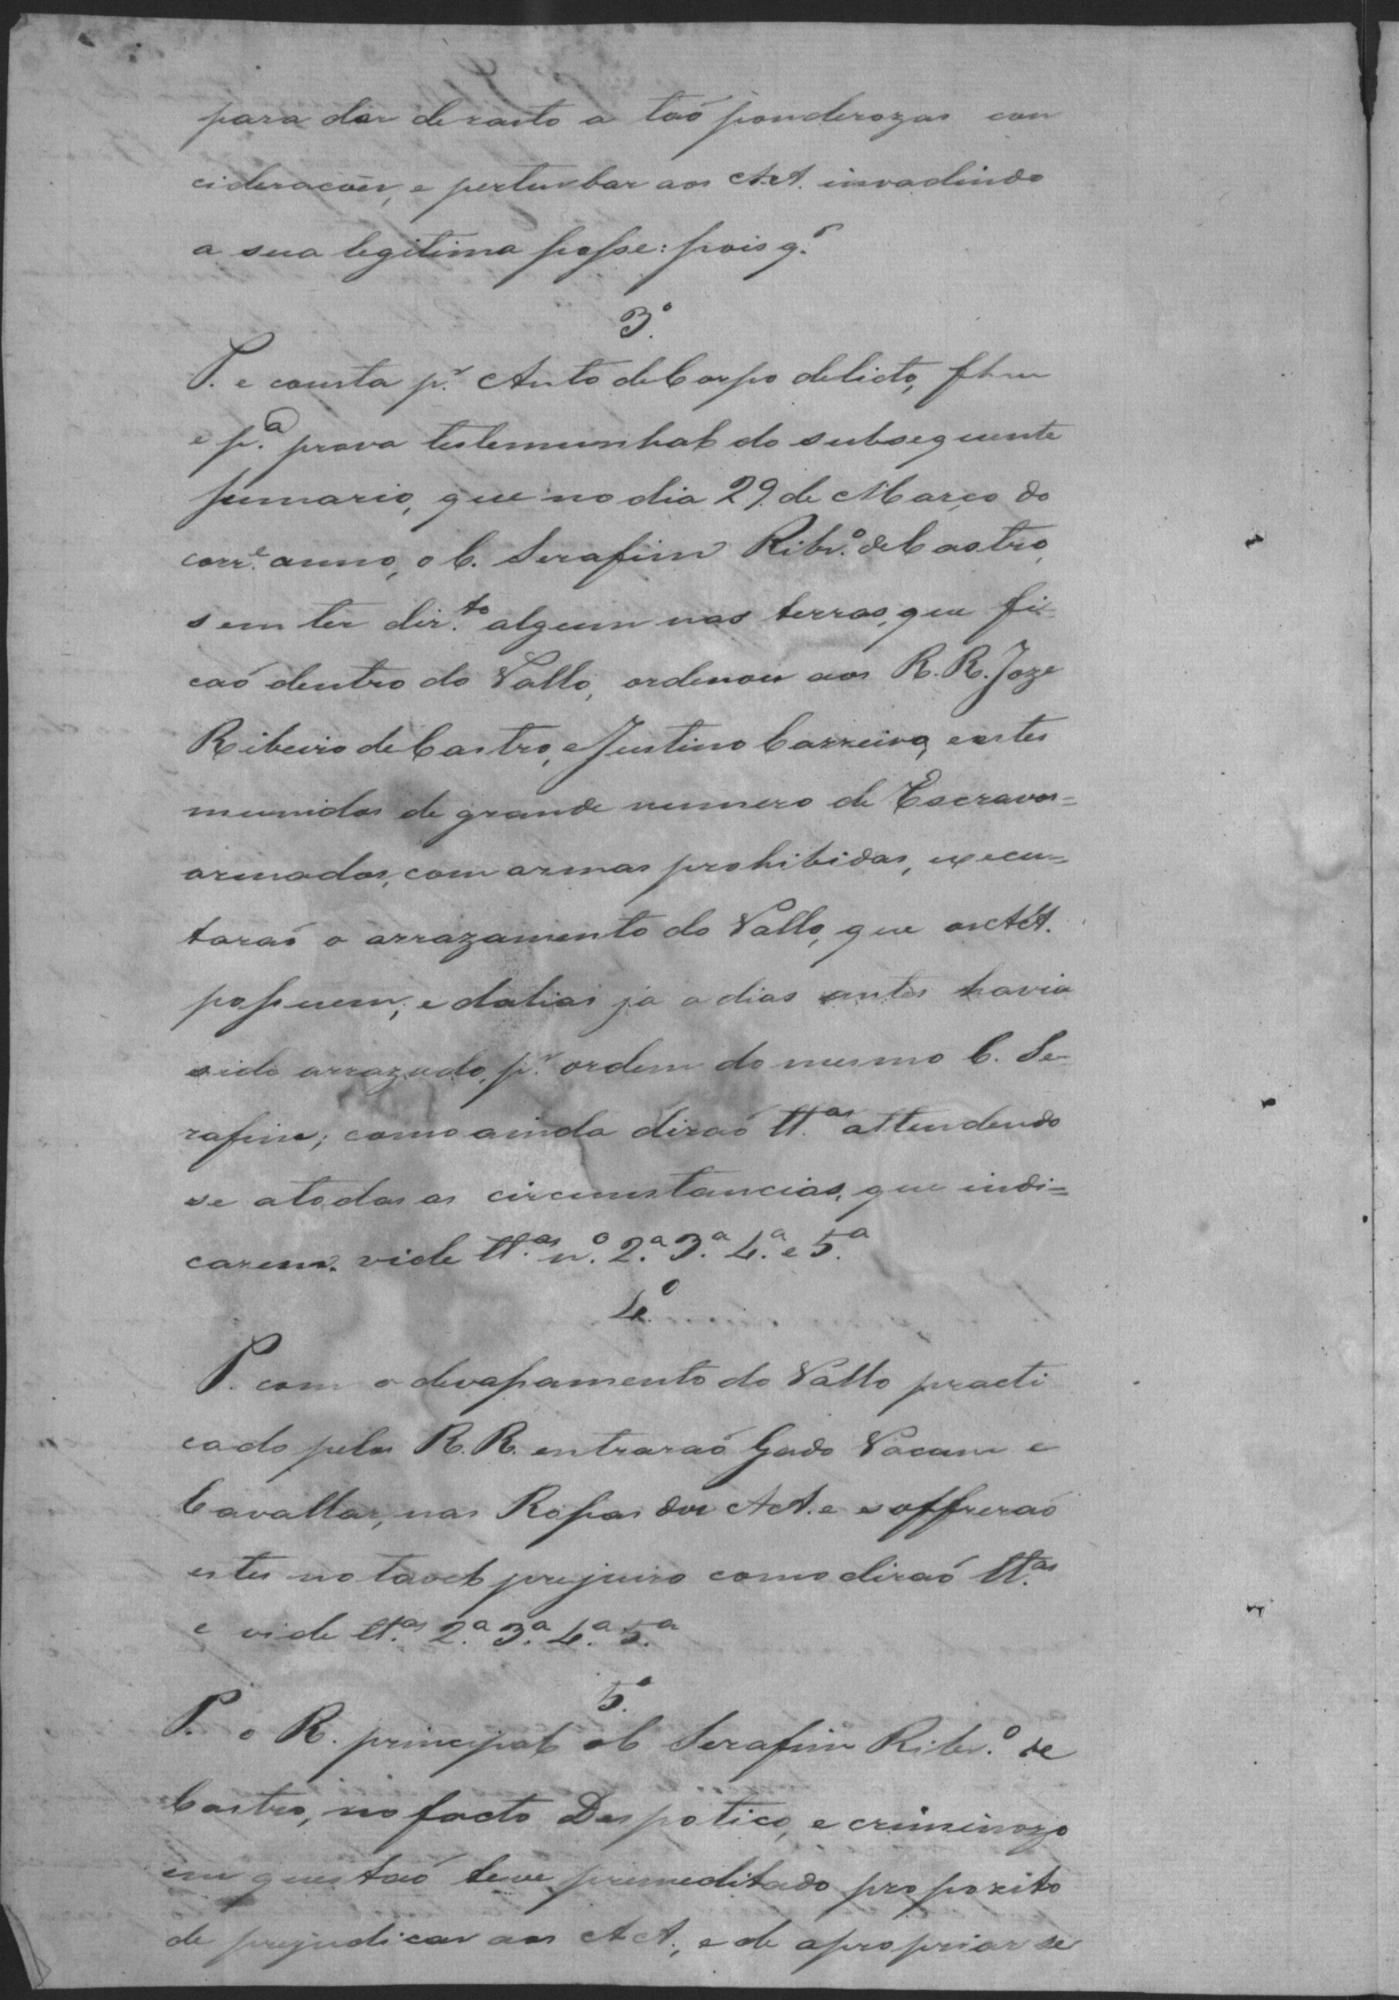 para dar de rasto a taõ ponderozas con
cideracoẽs, e perturbar aos A.A. invadindo
a sua legitima posse: pois q.
3.º
P. e consta p.r Auto de Corpo delicto, f
e p.a prova testemunhal do subsequente
sumario, que no dia 29 de Março do
corr.e anno, o C. Serafim Ribr.o de Castro,
sem ter dir.to algum nas terras, que fi
caõ dentro do Vallo, ordenou aos R.R. Joze
Ribeiro de Castro, e Justino Carreiro, e estes
munidos de grande numero de Escravos=
armados, com armas prohibidas, execu=
taraõ o arrazamento do Vallo, que os AA.
possuem; e daliás ja a dias antes havia
sido arrazado, p.r ordem do mesmo C. Se-
rafim; como ainda diraõ tt.as attendendo
se a todas as circumstancias, que indi=
carem. vide tt.as n.o 2.a 3.a 4.a e 5.a
4.º
P. com o devassamento do Vallo practi
cado pelos R.R. entraraõ Gado Vacum e
Cavallar, nas Rossas dos A.A. e soffreraõ
estes notavel prejuizo como diraõ tt.as
e vide tt.as 2.a 3.a 4.a 5.a
5.º
P. o R. principal o C Serafim Ribr.o de
Castro, no facto Despotico, e criminozo
em questaõ teve premeditado propozito
de prejudicar aos A.A., e de apropriar se